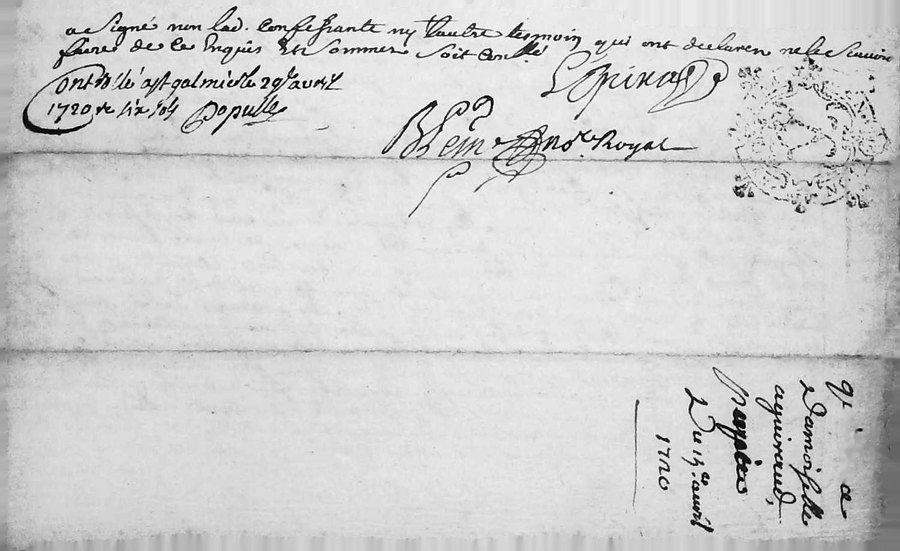 a signé non lad. Confessante ny Lautre tesmoin qui ont declarer ne le scavoir
faire de ce enquis et sommer soit conllé
Contrôlé a st galmier le 29e avril
1720 Rx six sols Populle
Lespinasse
Blein Nore Royal
qce a
Damoiselle
aguiraud,
Du 15eo avril
1720